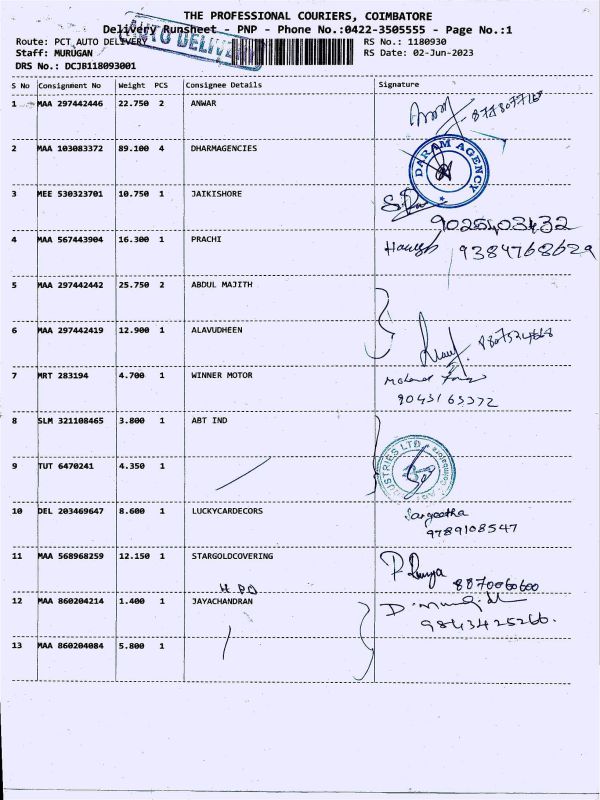 THE PROFESSIONAL COURIERS, COIMBATORE
Delivery Runsheet - PNP - Phone No.:0422-3505555 - Page No.:1
AUTO DELIVERY
Route: PCT AUTO DELIVERY RS No.: 1180930
Staff: MURUGAN RS Date: 02-Jun-2023
DRS No.: DCJB118093001
S No Consignment No Weight PCS Consignee Details Signature
1 MAA 297442446 22.750 2 ANWAR
2 MAA 103083372 89.100 4 DHARMAGENCIES DARAM AGENCY
3 MEE 530323701 10.750 1 JAIKISHORE
9025403432
4 MAA 567443904 16.300 1 PRACHI 9384768629
5 MAA 297442442 25.750 2 ABDUL MAJITH
6 MAA 297442419 12.900 1 ALAVUDHEEN
7 MRT 283194 4.700 1 WINNER MOTOR
9043165372
8 SLM 321108465 3.800 1 ABT IND
9 TUT 6470241 4.350 1
10 DEL 203469647 8.600 1 LUCKYCARDECORS Sangeetha
9789108547
11 MAA 568968259 12.150 1 STARGOLDCOVERING
8870060600
12 MAA 860204214 1.400 1 JAYACHANDRAN
9843425266.
13 MAA 860204084 5.800 1